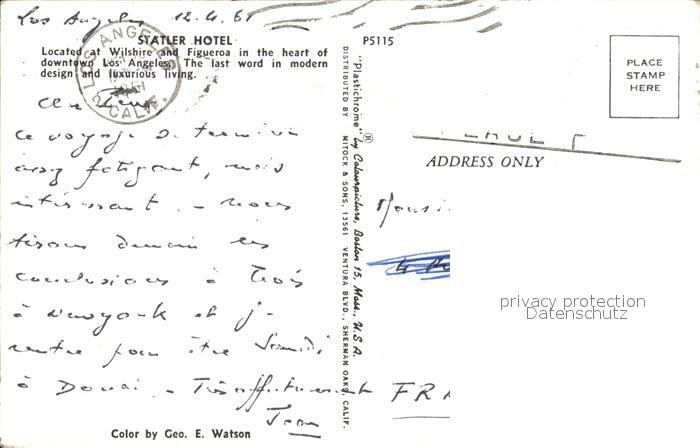 Los Angeles 12.4.61
STATLER HOTEL
Located at Wilshire and Figueroa in the heart of
downtown Los Angeles. The last word in modern
design and luxurious living.
LOS ANGELES
2 CALIF.
ce voyage se termine
assez fatigant, mais
intéressant. - nous
tirons demain les
conclusions à Trois
à Newyork et je
rentre pour être Samedi
à Douai. - Très affectueusement
Jean
Color by Geo. E. Watson
P5115
"Plastichrome" ® by Colourpicture, Boston 15, Mass., U.S.A.
DISTRIBUTED BY MITOCK & SONS, 13561 VENTURA BLVD., SHERMAN OAKS, CALIF.
PLACE
STAMP
HERE
ADDRESS ONLY
Monsi
privacy protection
Datenschutz
FRA